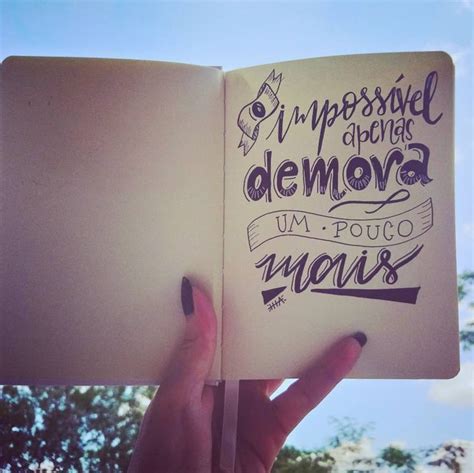 O
impossível
apenas
demora
UM · POUCO
mais